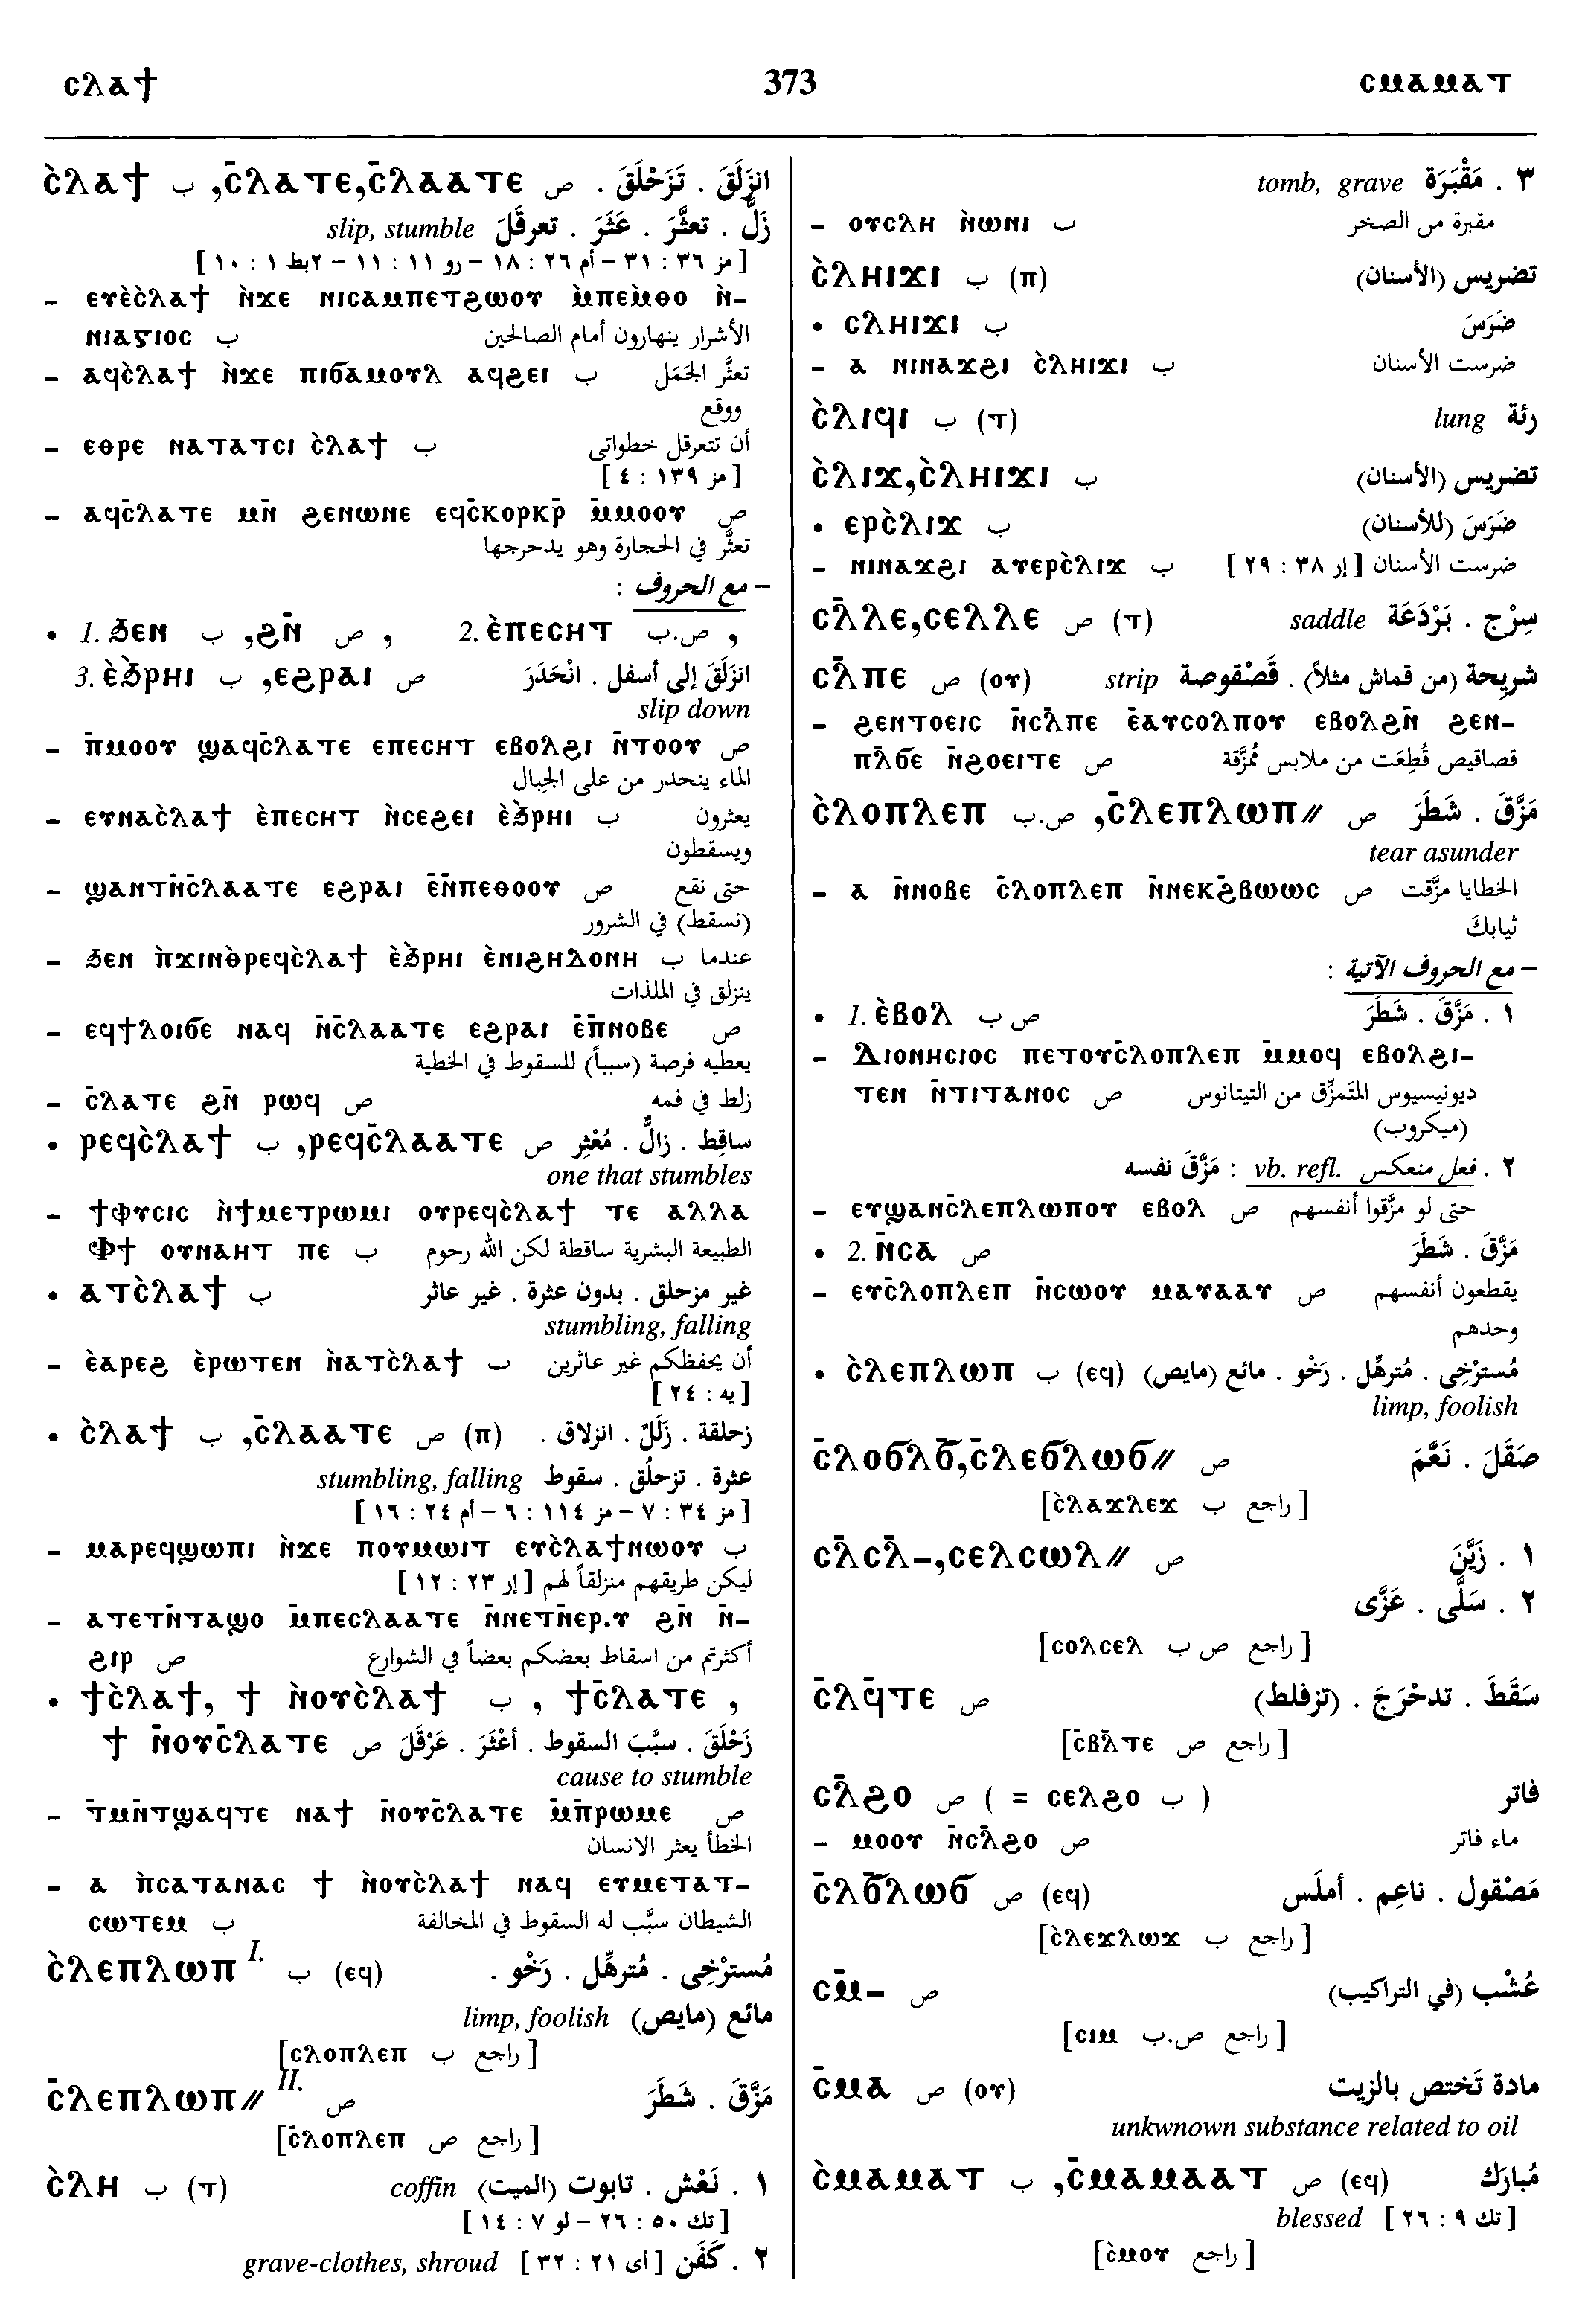 ⲥⲗⲁϯ 373 ⲥⲙⲁⲙⲁⲧ
ⲥ̀ⲗⲁϯ ب ,ⲥ̄ⲗⲁⲧⲉ,ⲥ̄ⲗⲁⲁⲧⲉ ص انزَلَقَ . تَزَحْلَقَ .
زَلَّ . تعثَّرَ . عَثَرَ . تعرقَلَ slip, stumble
[مز ٣٦ : ٣١ – أم ٢٦ : ١٨ – رو ١١ : ١١ – ٢بط ١ : ١٠]
– ⲉⲩⲉ̀ⲥ̀ⲗⲁϯ ⲛ̀ϫⲉ ⲛⲓⲥⲁⲙⲡⲉⲧϩⲱⲟⲩ ⲙ̀ⲡⲉⲙ̀ⲑⲟ ⲛ̀-
ⲛⲓⲁⲅⲓⲟⲥ ب الأشرار ينهارون أمام الصالحين
– ⲁϥⲥ̀ⲗⲁϯ ⲛ̀ϫⲉ ⲡⲓϭⲁⲙⲟⲩⲗ ⲁϥϩⲉⲓ ب تعثَّر الجَمَل
ووقع
– ⲉⲑⲣⲉ ⲛⲁⲧⲁⲧⲥⲓ ⲥ̀ⲗⲁϯ ب أن تتعرقل خطواتى
[مز ١٣٩ : ٤]
– ⲁϥⲥ̄ⲗⲁⲧⲉ ⲙⲛ̄ ϩⲉⲛⲱⲛⲉ ⲉϥⲥ̄ⲕⲟⲣⲕⲣ̄ ⲙ̄ⲙⲟⲟⲩ ص
تعثَّر في الحجارة وهو يدحرجها
– مع الحروف :
• 1. ϧⲉⲛ ب ,ϩⲛ̄ ص , 2. ⲉ̀ⲡⲉⲥⲏⲧ ص.ب ,
3. ⲉ̀ϧⲣⲏⲓ ب ,ⲉϩⲣⲁⲓ ص انزَلَقَ إلى أسفل . انْحَدَرَ
slip down
– ⲡ̄ⲙⲟⲟⲩ ϣⲁϥⲥ̄ⲗⲁⲧⲉ ⲉⲡⲉⲥⲏⲧ ⲉⲃⲟⲗϩⲓ ⲛ̄ⲧⲟⲟⲩ ص
الماء ينحدر من على الجِبال
– ⲉⲩⲛⲁⲥ̀ⲗⲁϯ ⲉ̀ⲡⲉⲥⲏⲧ ⲛ̀ⲥⲉϩⲉⲓ ⲉ̀ϧⲣⲏⲓ ب يعثرون
ويسقطون
– ϣⲁⲛⲧⲛ̄ⲥ̄ⲗⲁⲁⲧⲉ ⲉϩⲣⲁⲓ ⲉ̄ⲛ̄ⲡⲉⲑⲟⲟⲩ ص حتى نقع
(نسقط) في الشرور
– ϧⲉⲛ ⲡ̀ϫⲓⲛⲑ̀ⲣⲉϥⲥ̀ⲗⲁϯ ⲉ̀ϧⲣⲏⲓ ⲉ̀ⲛⲓϩⲏⲇⲟⲛⲏ ب عندما
ينزلق في الملذات
– ⲉϥϯⲗⲟⲓϭⲉ ⲛⲁϥ ⲛ̄ⲥ̄ⲗⲁⲁⲧⲉ ⲉϩⲣⲁⲓ ⲉ̄ⲡ̄ⲛⲟⲃⲉ ص
يعطيه فرصة (سبباً) للسقوط في الخطية
– ⲥ̄ⲗⲁⲧⲉ ϩⲛ̄ ⲣⲱϥ ص زلط في فمه
• ⲣⲉϥⲥ̀ⲗⲁϯ ب ,ⲣⲉϥⲥ̄ⲗⲁⲁⲧⲉ ص ساقِط . زالٌّ . مُعْثِر
one that stumbles
– ϯⲫⲩⲥⲓⲥ ⲛ̀ϯⲙⲉⲧⲣⲱⲙⲓ ⲟⲩⲣⲉϥⲥ̀ⲗⲁϯ ⲧⲉ ⲁⲗⲗⲁ
ⲫϯ ⲟⲩⲛⲁⲏⲧ ⲡⲉ ب الطبيعة البشرية ساقطة لكن الله رحوم
• ⲁⲧⲥ̀ⲗⲁϯ ب غير مزحلق . بدون عثرة . غير عاثر
stumbling, falling
– ⲉ̀ⲁⲣⲉϩ ⲉ̀ⲣⲱⲧⲉⲛ ⲛ̀ⲁⲧⲥ̀ⲗⲁϯ ب أن يحفظكم غير عاثرين
[يه : ٢٤]
• ⲥ̀ⲗⲁϯ ب ,ⲥ̄ⲗⲁⲁⲧⲉ ص (ⲡ) زحلقة . زَلَلٌ . انزلاق .
عثرة . تزحلُق . سقوط stumbling, falling
[مز ٣٤ : ٧ – مز ١١٤ : ٦ – أم ٢٤ : ١٦]
– ⲙⲁⲣⲉϥϣⲱⲡⲓ ⲛ̀ϫⲉ ⲡⲟⲩⲙⲱⲓⲧ ⲉⲩⲥ̀ⲗⲁϯⲛⲱⲟⲩ ب
ليكن طريقهم منزلقاً لهم [إر ٢٣ : ١٢]
– ⲁⲧⲉⲧⲛ̄ⲧⲁϣⲟ ⲙ̄ⲡⲉⲥⲗⲁⲁⲧⲉ ⲛ̄ⲛⲉⲧⲛ̄ⲉⲣ.ⲩ ϩⲛ̄ ⲛ̄-
ϩⲓⲣ ص أكثرتم من اسقاط بعضكم بعضاً في الشوارع
• ϯⲥ̀ⲗⲁϯ, ϯ ⲛ̀ⲟⲩⲥ̀ⲗⲁϯ ب , ϯⲥ̄ⲗⲁⲧⲉ ,
ϯ ⲛ̄ⲟⲩⲥ̄ⲗⲁⲧⲉ ص زَحْلَقَ . سبَّبَ السقوط . أعْثَرَ . عَرْقَلَ
cause to stumble
– ⲧ̄ⲙⲛ̄ⲧϣⲁϥⲧⲉ ⲛⲁϯ ⲛ̄ⲟⲩⲥ̄ⲗⲁⲧⲉ ⲙ̄ⲡ̄ⲣⲱⲙⲉ ص
الخطأ يعثر الانسان
– ⲁ ⲡ̀ⲥⲁⲧⲁⲛⲁⲥ ϯ ⲛ̀ⲟⲩⲥ̀ⲗⲁϯ ⲛⲁϥ ⲉⲩⲙⲉⲧⲁⲧ-
ⲥⲱⲧⲉⲙ ب الشيطان سبَّب له السقوط في المخالفة
ⲥ̀ⲗⲉⲡⲗⲱⲡ I. ب (ⲉϥ) مُسترْخِى . مُترهِّل . رَخْو .
مائع (مايص) limp, foolish
[راجع ب ⲥⲗⲟⲡⲗⲉⲡ]
ⲥ̄ⲗⲉⲡⲗⲱⲡ// II. ص مَزَّقَ . شَطَرَ
[راجع ص ⲥ̄ⲗⲟⲡⲗⲉⲡ]
ⲥ̀ⲗⲏ ب (ⲧ) ١ . نَعْش . تابوت (الميت) coffin
[تك ٥٠ : ٢٦ – لو ٧ : ١٤]
٢ . كَفَن [أى ٢١ : ٣٢] grave-clothes, shroud
٣ . مَقْبَرَة tomb, grave
– ⲟⲩⲥⲗⲏ ⲛ̀ⲱⲛⲓ ب مقبرة من الصخر
ⲥ̀ⲗⲏⲓϫⲓ ب (ⲡ) تضريس (الأسنان)
• ⲥⲗⲏⲓϫⲓ ب ضَرَسَ
– ⲁ ⲛⲓⲛⲁϫϩⲓ ⲥ̀ⲗⲏⲓϫⲓ ب ضرست الأسنان
ⲥ̀ⲗⲓϥⲓ ب (ⲧ) رئة lung
ⲥ̀ⲗⲓϫ,ⲥ̀ⲗⲏⲓϫⲓ ب تضريس (الأسنان)
• ⲉⲣⲥ̀ⲗⲓϫ ب ضَرَسَ (للأسنان)
– ⲛⲓⲛⲁϫϩⲓ ⲁⲩⲉⲣⲥ̀ⲗⲓϫ ب ضرست الأسنان [إر ٣٨ : ٢٩]
ⲥⲗ̄ⲗⲉ,ⲥⲉⲗⲗⲉ ص (ⲧ) سِرْج . بَرْدَعَة saddle
ⲥⲗ̄ⲡⲉ ص (ⲟⲩ) شريحة (من قماش مثلاً) . قَصْقوصة strip
– ϩⲉⲛⲧⲟⲉⲓⲥ ⲛ̄ⲥⲗ̄ⲡⲉ ⲉ̄ⲁⲩⲥⲟⲗⲡⲟⲩ ⲉⲃⲟⲗϩⲛ̄ ϩⲉⲛ-
ⲡⲗ̄ϭⲉ ⲛ̄ϩⲟⲉⲓⲧⲉ ص قصاقيص قُطِعَت من ملابس مُمَزَّقة
ⲥ̀ⲗⲟⲡⲗⲉⲡ ص.ب ,ⲥ̄ⲗⲉⲡⲗⲱⲡ// ص مَزَّقَ . شَطَرَ
tear asunder
– ⲁ ⲛ̄ⲛⲟⲃⲉ ⲥ̄ⲗⲟⲡⲗⲉⲡ ⲛ̄ⲛⲉⲕϩ̄ⲃⲱⲱⲥ ص الخطايا مزَّقت
ثيابكَ
– مع الحروف الآتية :
• 1. ⲉ̀ⲃⲟⲗ ص ب ١ . مَزَّقَ . شَطَرَ
– ⲇⲓⲟⲛⲏⲥⲓⲟⲥ ⲡⲉⲧⲟⲩⲥ̄ⲗⲟⲡⲗⲉⲡ ⲙ̄ⲙⲟϥ ⲉⲃⲟⲗϩⲓ-
ⲧⲉⲛ ⲛ̄ⲧⲓⲧⲁⲛⲟⲥ ص ديونيسيوس المتَمزِّق من التيتانوس
(ميكروب)
٢ . فعل منعكس vb. refl. : مَزَّقَ نفسه
– ⲉⲩϣⲁⲛⲥ̄ⲗⲉⲡⲗⲱⲡⲟⲩ ⲉⲃⲟⲗ ص حتى لو مزَّقوا أنفسهم
• 2. ⲛ̄ⲥⲁ ص مَزَّقَ . شَطَرَ
– ⲉⲩⲥ̄ⲗⲟⲡⲗⲉⲡ ⲛ̄ⲥⲱⲟⲩ ⲙⲁⲩⲁⲁⲩ ص يقطعون أنفسهم
وحدهم
• ⲥ̀ⲗⲉⲡⲗⲱⲡ ب (ⲉϥ) مُسترْخِى . مُترهِّل . رَخْو . مائع (مايص)
limp, foolish
ⲥ̄ⲗⲟϭⲗϭ̄,ⲥ̄ⲗⲉϭⲗⲱϭ// ص صَقَلَ . نَعَّمَ
[راجع ب ⲥ̀ⲗⲁϫⲗⲉϫ]
ⲥⲗ̄ⲥⲗ̄-,ⲥⲉⲗⲥⲱⲗ// ص ١ . زَيَّنَ
٢ . سَلَّى . عَزَّى
[راجع ص ب ⲥⲟⲗⲥⲉⲗ]
ⲥ̄ⲗϥ̄ⲧⲉ ص سَقَطَ . تدحْرَجَ . (تزفلط)
[راجع ص ⲥ̄ⲃⲗ̄ⲧⲉ]
ⲥⲗ̄ϩⲟ ص ( = ⲥⲉⲗϩⲟ ب ) فاتر
– ⲙⲟⲟⲩ ⲛ̄ⲥⲗ̄ϩⲟ ص ماء فاتر
ⲥ̄ⲗϭ̄ⲗⲱϭ ص (ⲉϥ) مَصْقول . ناعِم . أملَس
[راجع ب ⲥ̀ⲗⲉϫⲗⲱϫ]
ⲥⲙ̄- ص عُشْب (في التراكيب)
[راجع ص.ب ⲥⲓⲙ]
ⲥ̄ⲙⲁ ص (ⲟⲩ) مادة تَختص بالزيت
unkwnown substance related to oil
ⲥ̀ⲙⲁⲙⲁⲧ ب ,ⲥ̄ⲙⲁⲙⲁⲁⲧ ص (ⲉϥ) مُبارَك
[تك ٩ : ٢٦] blessed
[راجع ⲥ̀ⲙⲟⲩ]